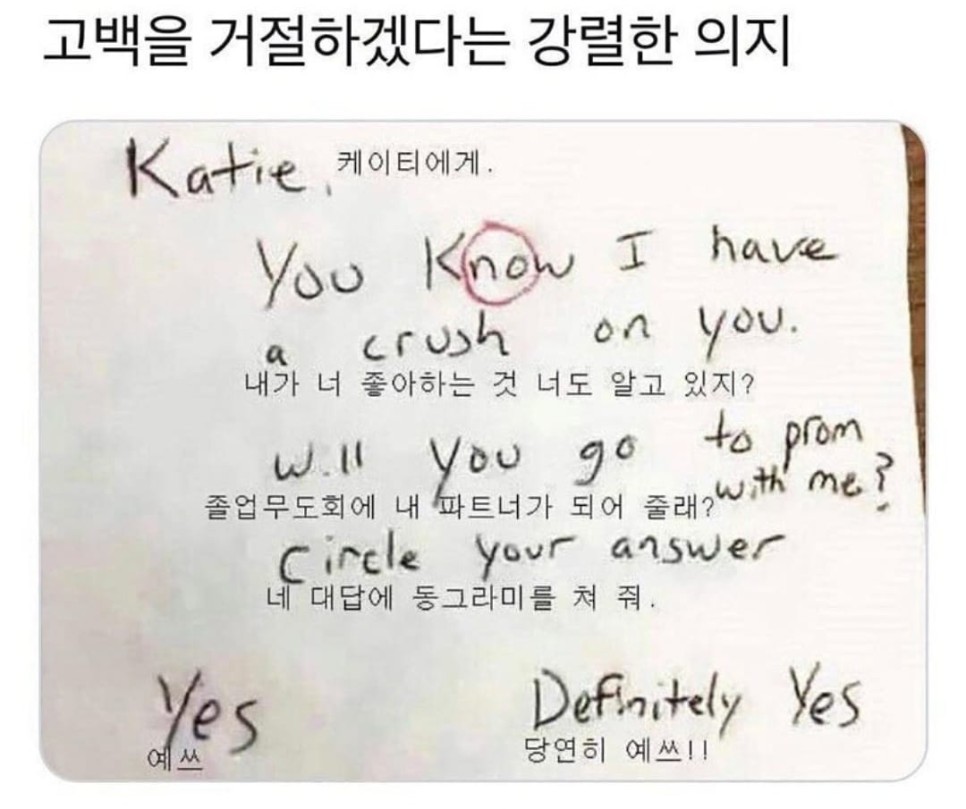 고백을 거절하겠다는 강렬한 의지
Katie, 케이티에게.
You Know I have
a crush on you.
내가 너 좋아하는 것 너도 알고 있지?
Will you go to prom
with me?
졸업무도회에 내 파트너가 되어 줄래?
Circle your answer
네 대답에 동그라미를 쳐 줘.
Yes Definitely Yes
예쓰 당연히 예쓰!!